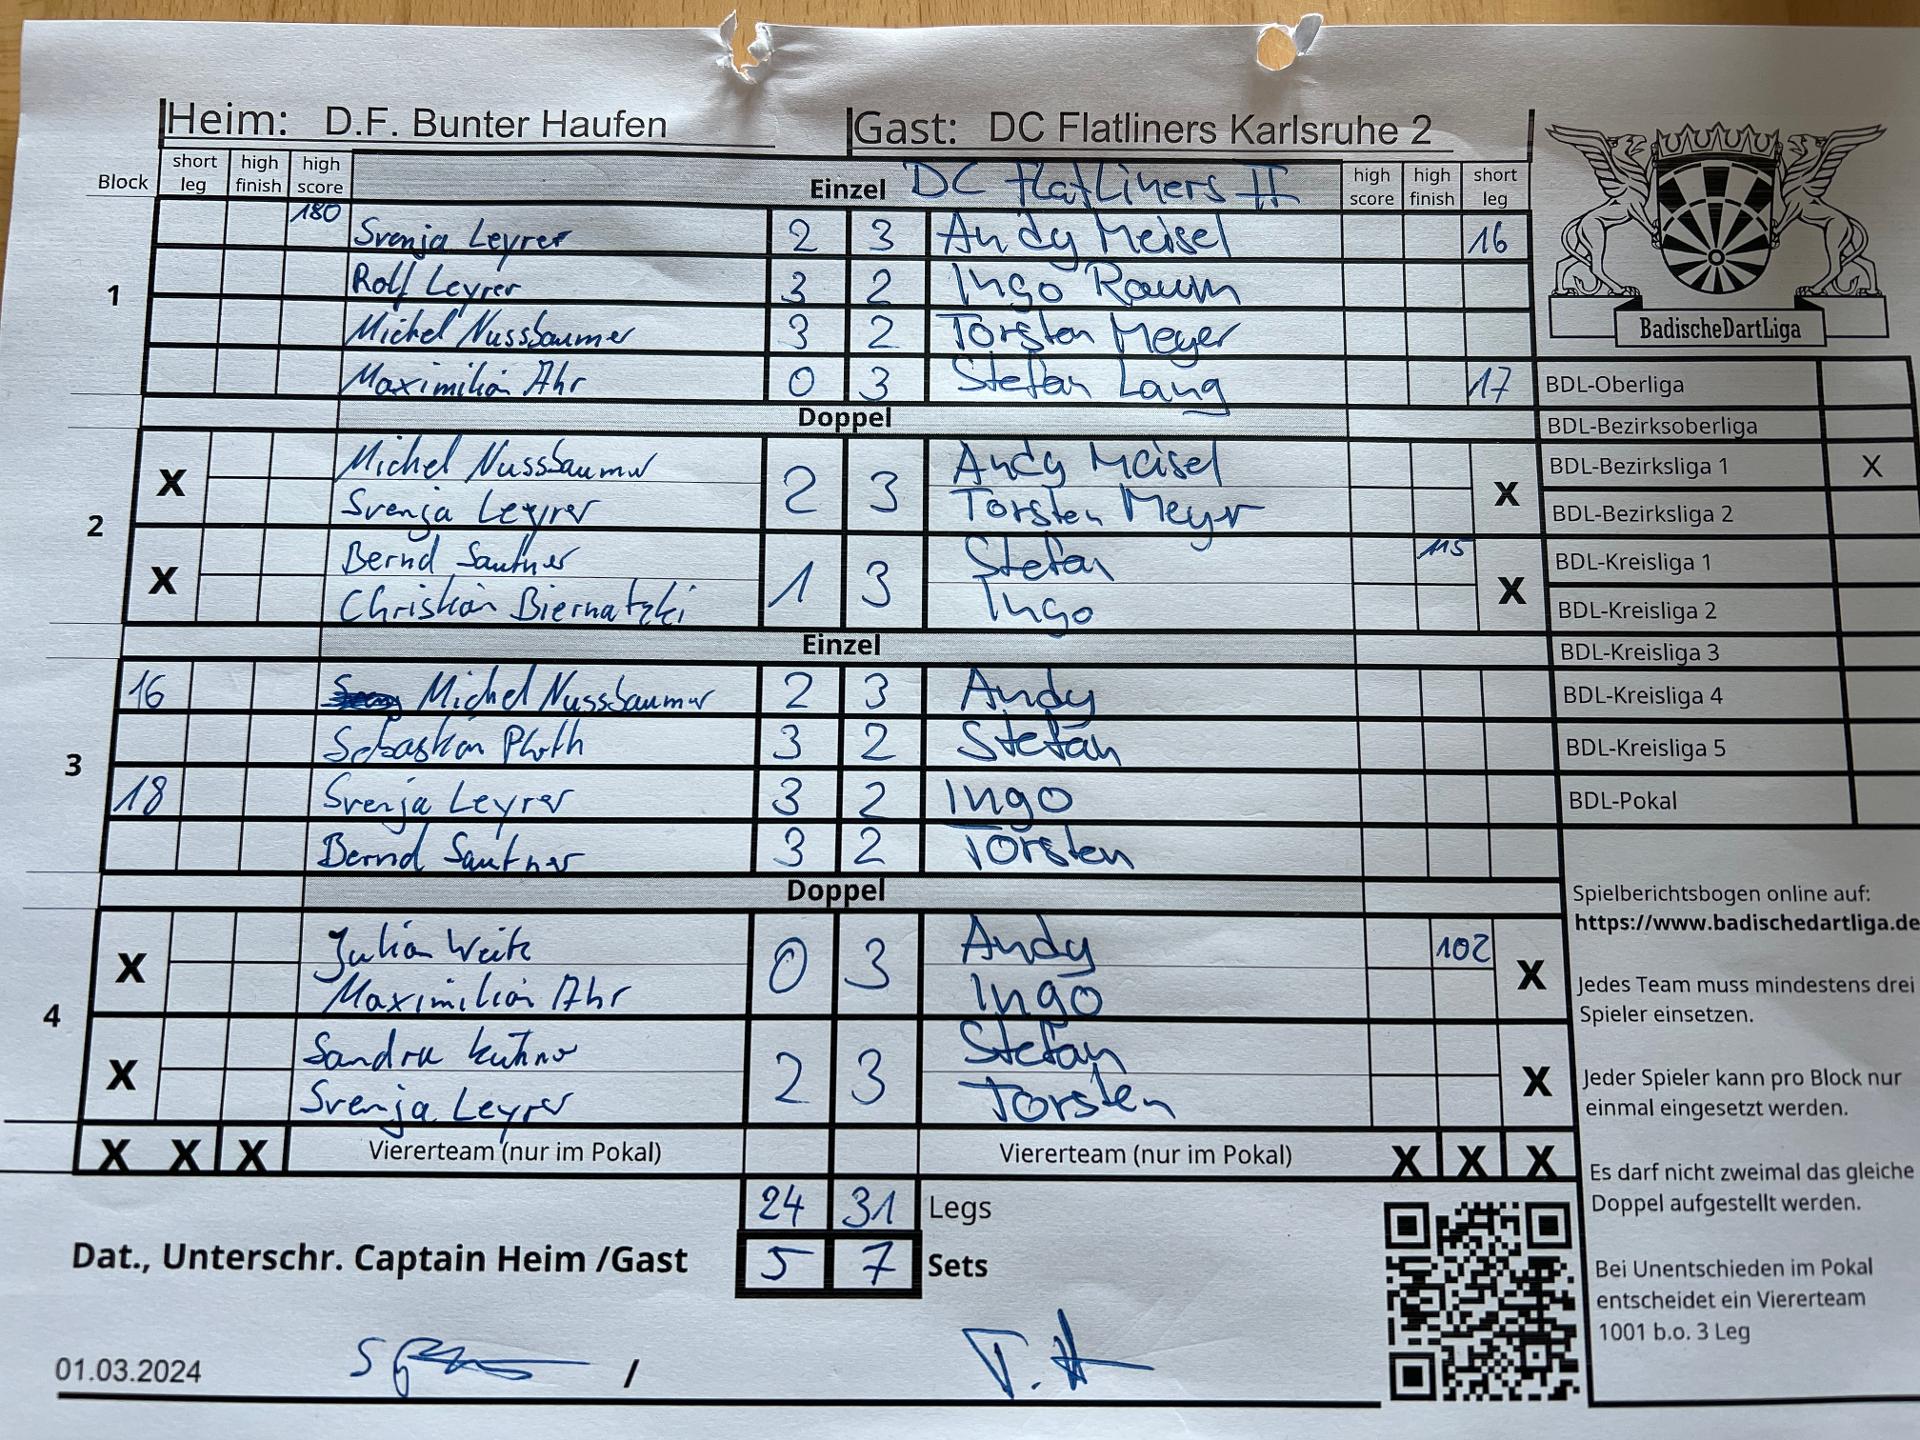 Heim: D.F. Bunter Haufen Gast: DC Flatliners Karlsruhe 2
Block short leg high finish high score Einzel DC Flatliners II high score high finish short leg
1
180 Svenja Leyrer 2 3 Andy Meisel 16
Rolf Leyrer 3 2 Ingo Raum
Michel Nussbaumer 3 2 Torsten Meyer
Maximilian Ahr 0 3 Stefan Lang 17
Doppel
2
X Michel Nussbaumer 2 3 Andy Meisel X
Svenja Leyrer Torsten Meyer
X Bernd Sautner 1 3 Stefan 115 X
Christian Biernatzki Ingo
Einzel
3
16 Michel Nussbaumer 2 3 Andy
Sebastian 3 2 Stefan
18 Svenja Leyrer 3 2 Ingo
Bernd Sautner 3 2 Torsten
Doppel
4
X Julian 0 3 Andy 102 X
Maximilian Ahr Ingo
X Sandra 2 3 Stefan X
Svenja Leyrer Torsten
X X X Viererteam (nur im Pokal) Viererteam (nur im Pokal) X X X
24 31 Legs
Dat., Unterschr. Captain Heim /Gast 5 7 Sets
01.03.2024 /
BadischeDartLiga
BDL-Oberliga
BDL-Bezirksoberliga
BDL-Bezirksliga 1 X
BDL-Bezirksliga 2
BDL-Kreisliga 1
BDL-Kreisliga 2
BDL-Kreisliga 3
BDL-Kreisliga 4
BDL-Kreisliga 5
BDL-Pokal
Spielberichtsbogen online auf:
https://www.badischedartliga.de
Jedes Team muss mindestens drei
Spieler einsetzen.
Jeder Spieler kann pro Block nur
einmal eingesetzt werden.
Es darf nicht zweimal das gleiche
Doppel aufgestellt werden.
Bei Unentschieden im Pokal
entscheidet ein Viererteam
1001 b.o. 3 Leg